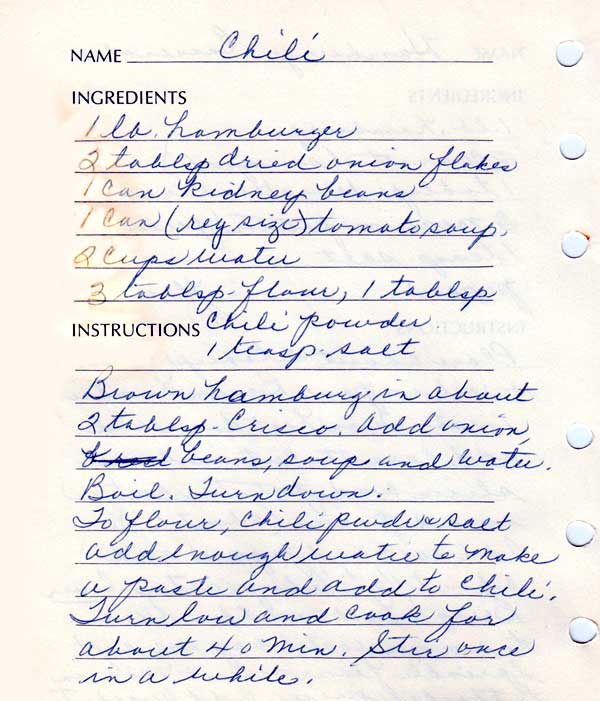 NAME Chili
INGREDIENTS
1 lb. hamburger
2 tablsp dried onion flakes
1 can kidney beans
1 can (reg size) tomato soup.
2 cups water
3 tablsp. flour, 1 tablsp
INSTRUCTIONS chili powder
1 teasp. salt
Brown hamburg in about
2 tablsp. Crisco. Add onion,
beans, soup and water.
Boil. Turn down.
To flour, chili pwdr & salt
add enough water to make
a paste and add to chili.
Turn low and cook for
about 40 min. Stir once
in a while.